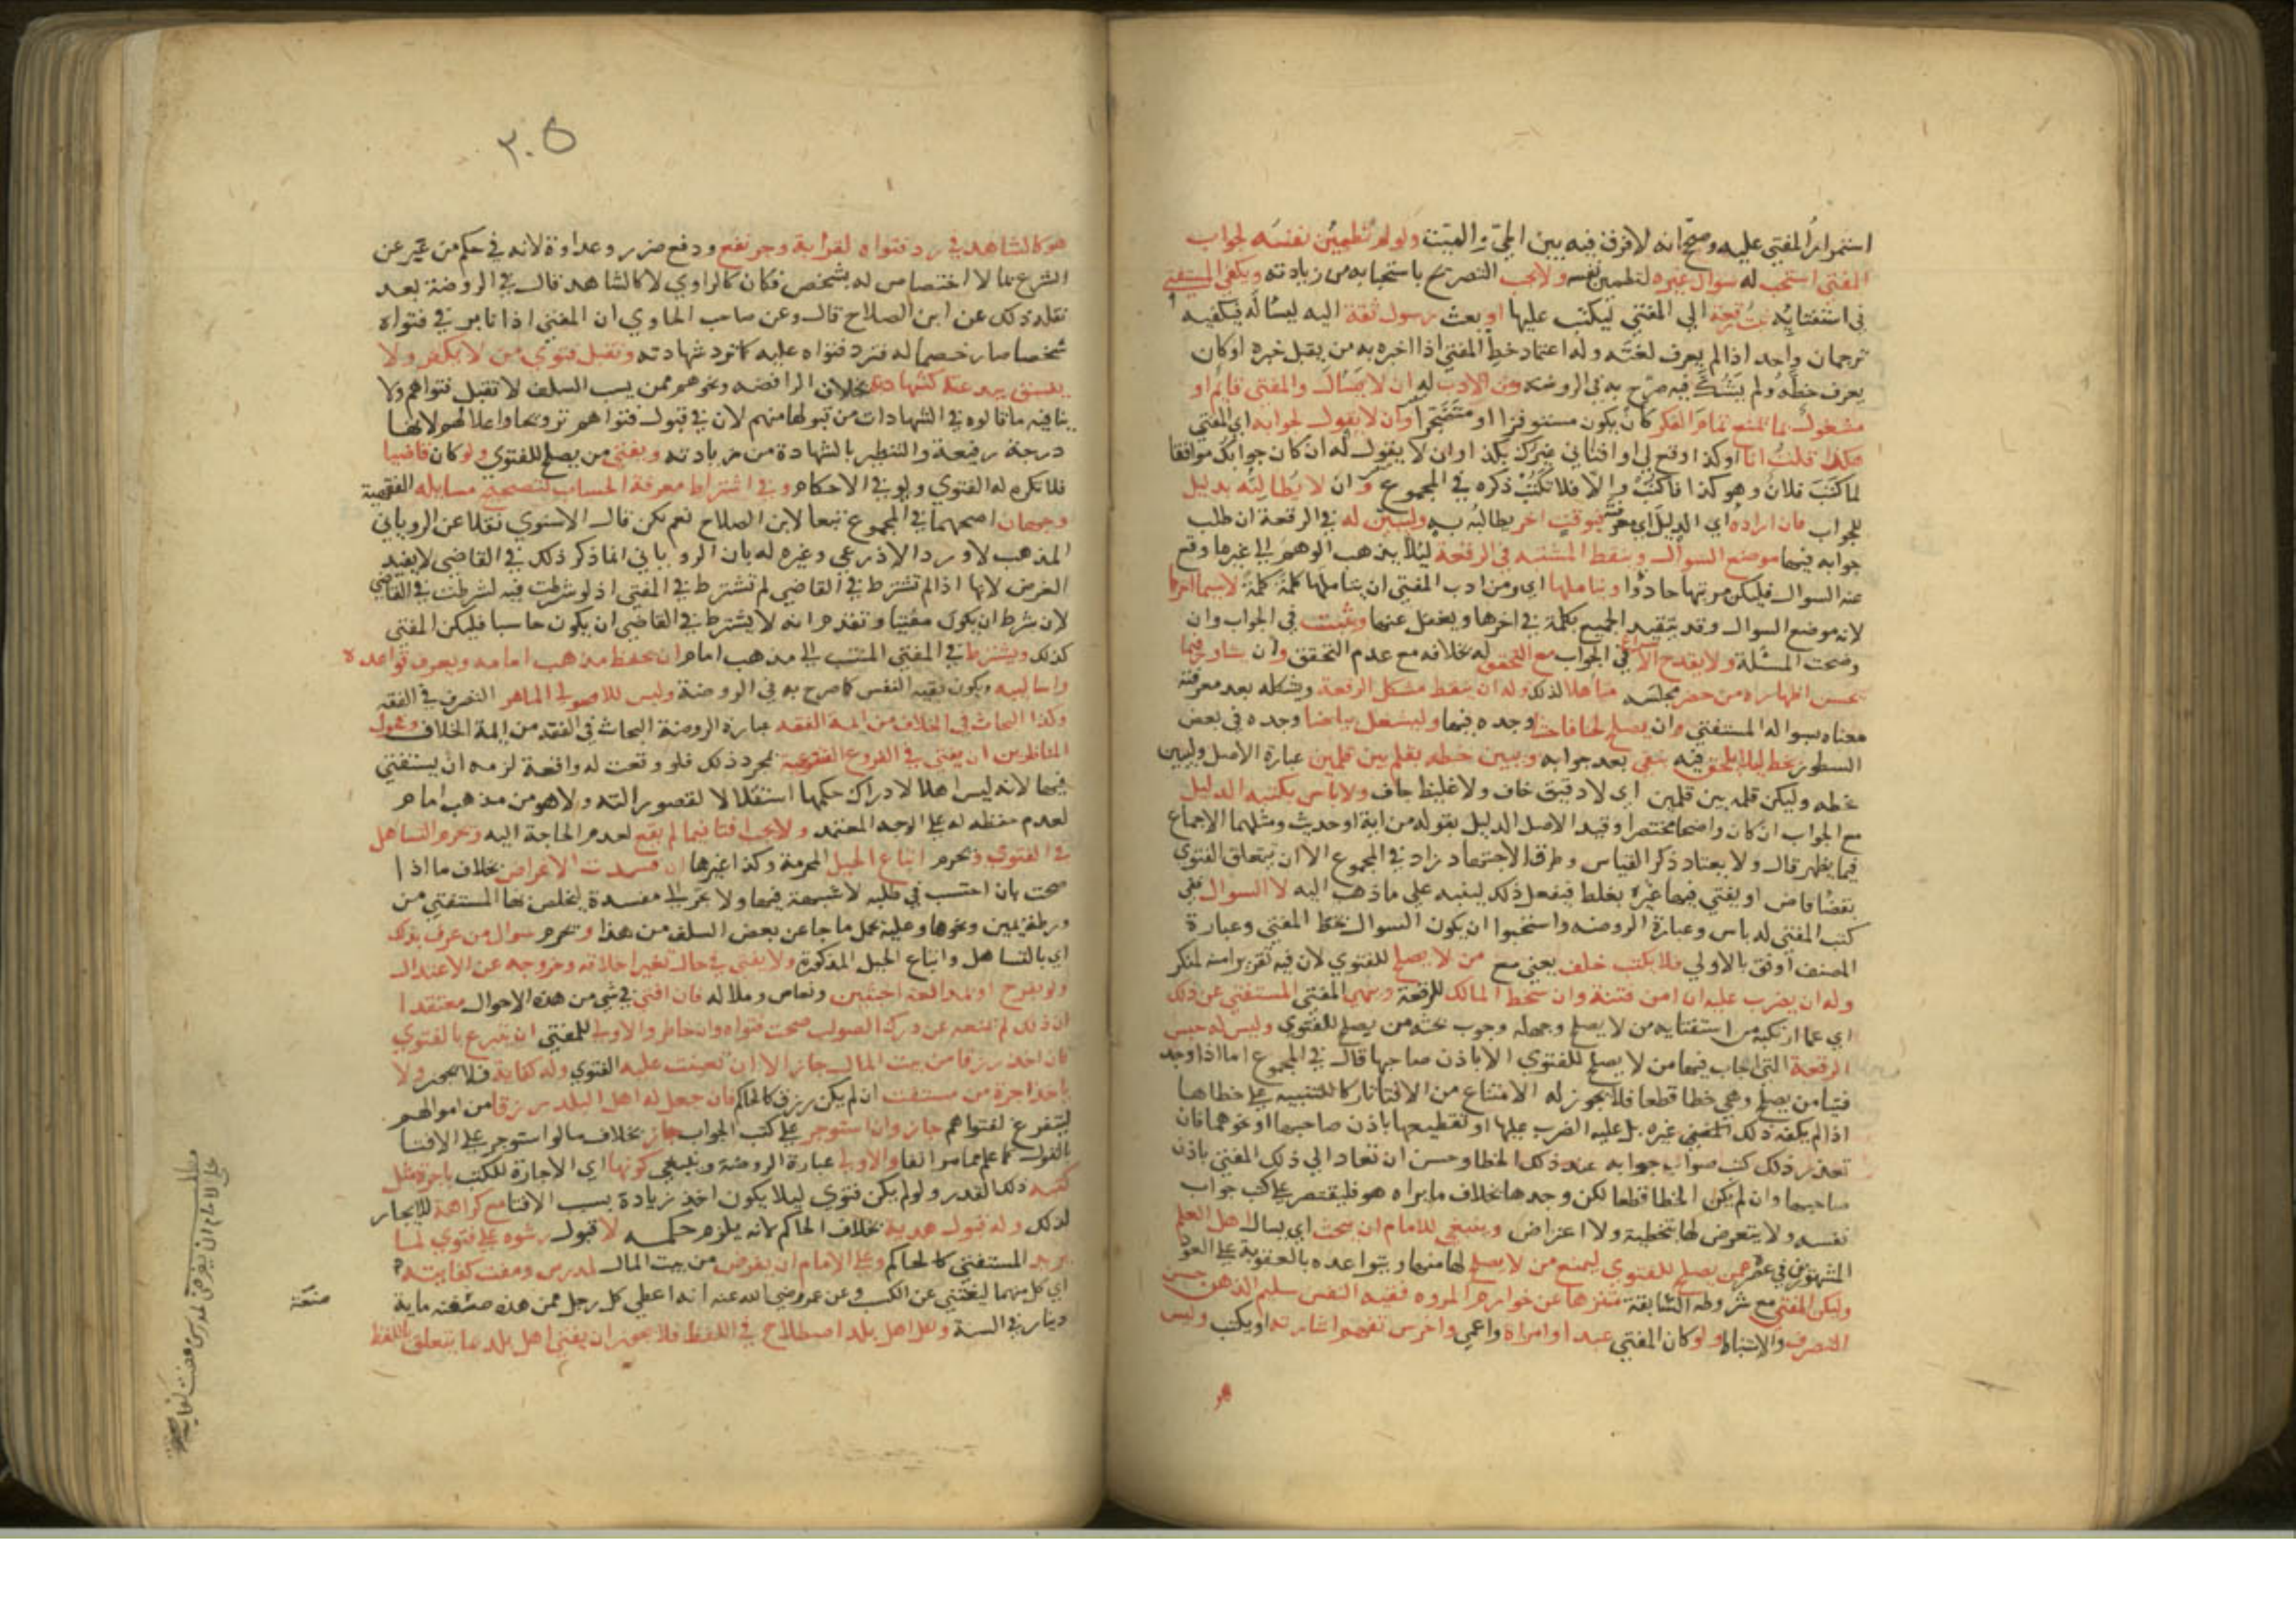 استمرار المفتي عليه وصح انه لا فرق فيه بين الحي والميت ولو لم تطمئن نفسه لجواب
المفتي استحب له سوال غيره لتطمين نفسه ولا يجب التصريح باستحبابه من زيادته ويكفي المستفتي
في استفتايه بعث رقعة الي المفتي ليكتب عليها او بعث رسول ثقة اليه ليساله فيكفيه
ترجمان واحد اذا لم يعرف لغته وله اعتماد خط المفتي اذا اخبره به من يقبل خبره او كان
يعرف خطه ولم يتشكك فيه صرح به في الروضة ومن الادب له ان لا يسال والمفتي قائم او
مشغول بما يمنع تمام الفكر كان يكون مستوفزا او متضجرا وان لا يقول لجوابه اي المفتي
هكذا قلت انا او كذا وقع لي او افتاني غيرك بكذا وان لا يقول له ان كان جوابك موافقا
لما كتب فلان وهو كذا فاكتب والا فلا تكتب ذكره في المجموع وان لا يطالبه بدليل
للجواب فان اراده اي الدليل اي معرفته فوقت اخر يطالبه به وليبين له في الرقعة ان طلب
جوابه فيها موضع السوال وينقط المشتبه في الرقعة ليلا يذهب الوهم الي غير ما وقع
عنه السوال فليكن مرتبها حاذقا ويتاملها اي ومن ادب المفتي ان يتاملها كلمة كلمة لا سيما اخرها
لانه موضع السوال وقد يتقيد الجميع بكلمة في اخرها ويغفل عنها ويثبت في الجواب وان
وضحت المسئلة ولا يقدح الاسراع في الجواب مع التحقق له بخلافه مع عدم التحقق وان يشاور فيما
يحسن اظهاره من حضر مجلسه متاهلا لذلك وله ان ينقط مشكل الرقعة ويشكله بعد معرفة
معناه بسواله المستفتي وان يصلح لحنا فاحشا وجده فيها وليشغل بياضا وجده في بعض
السطور بخط ليلا يلحق فيه شي بعد جوابه ويبين خطه بقلم بين قلمين عبارة الاصل وليبين
خطه وليكن قلمه بين قلمين اي لا دقيق خاف ولا غليظ جاف ولا باس بكتبه الدليل
مع الجواب ان كان واضحا مختصرا وقيد الاصل الدليل بقوله من اية او حديث ومثلهما الاجماع
فيما يظهر قال ولا يعتاد ذكر القياس وطرق الاجتهاد زاد في المجموع الا ان يتعلق الفتوي
بقضا قاض او يفتي فيها غيره بغلط فيفعل ذلك لينبه علي ما ذهب اليه لا السوال ففي
كتب المفتي له باس وعبارة الروضة واستحبوا ان يكون السوال بخط المفتي وعبارة
المصنف اوفق بالاولي فلا يكتب خلف يعني مع من لا يصلح للفتوي لان فيه تقريرا منه لمنكر
وله ان يضرب عليه ان امن فتنة وان سخط المالك للرقعة وينهي المفتي المستفتي عن ذلك
اي عما ارتكبه من استفتايه من لا يصلح وجهله وجوب بحثه من يصلح للفتوي وليس له حبس
الرقعة التي اجاب فيها من لا يصلح للفتوي الا باذن صاحبها قال في المجموع اما اذا وجد
فتيا من يصلح وهي خطا قطعا فلا يجوز له الامتناع من الافتا تاركا للتنبيه علي خطاها
اذا لم يكفه ذلك المفتي غيره بل عليه الضرب عليها او تقطيعها باذن صاحبها او نحوهما فان
تعذر ذلك كتب صواب جوابه عند ذلك الخطا وحسن ان تعاد الي ذلك المفتي باذن
صاحبها وان لم يكن الخطا قطعا لكن وجدها بخلاف ما يراه هو فليقتصر علي كتب جواب
نفسه ولا يتعرض لها بتخطية ولا اعتراض وينبغي للامام ان يبحث اي يسال اهل العلم
المشهورين في عصره عمن يصلح للفتوي ليمنع من لا يصلح لها منها ويتواعده بالعقوبة علي العود
وليكن المفتي مع شروطه السابقة متنزها عن خوارم المروه فقيه النفس سليم الذهن حسن
التصرف والاستنباط ولو كان المفتي عبدا او امراة واعمي واخرس تفهم اشارته او يكتب وليس
هو
٣٠٥
هو كالشاهد في رد فتواه لقرابة وجر نفع ودفع ضرر وعداوة لانه في حكم من يخبر عن
الشرع بما لا اختصاص له بشخص فكان كالراوي لا كالشاهد قال في الروضة بعد
نقله ذلك عن ابن الصلاح قال وعن صاحب الحاوي ان المفتي اذا نابذ في فتواه
شخصا صار خصما له فترد فتواه عليه كما ترد شهادته وتقبل فتوي من لا يكفر ولا
يفسق ببدعته كشهادته بخلاف الرافضه ونحوهم ممن يسب السلف لا تقبل فتواهم ولا
ينافيه ما قالوه في الشهادات من قبولها منهم لان في قبول فتواهم ترويجا واعلا لهم لانها
درجة رفيعة والتنظير بالشهادة من زيادته ويفتي من يصلح للفتوي ولو كان قاضيا
فلا تكره له الفتوي ولو في الاحكام وفي اشتراط معرفة الحساب لتصحيح مسايله الفقهية
وجهان اصحهما في المجموع تبعا لابن الصلاح نعم لكن قال الاسنوي نقلا عن الروياني
المذهب لا ورد الاذرعي وغيره له بان الروياني انما ذكر ذلك في القاضي لا يفيد
الغرض لانها اذا لم تشترط في القاضي لم تشترط في المفتي اذ لو شرطت فيه لشرطت في القاضي
لان شرط ان يكون مفتيا وتقدم انه لا يشترط في القاضي ان يكون حاسبا فليكن المفتي
كذلك ويشترط في المفتي المنتسب الي مذهب امام ان يحفظ مذهب امامه ويعرف قواعده
واساليبه ويكون فقيه النفس كما صرح به في الروضة وليس للاصولي الماهر التصرف في الفقه
وكذا البحاث في الخلاف من ايمة الفقه عبارة الروضة البحاث في الفقه من ايمة الخلاف وفحول
المناظرين ان يفتي في الفروع الفقهية بمجرد ذلك فلو وقعت له واقعة لزمه ان يستفتي
فيها لانه ليس اهلا لادراك حكمها استقلالا لقصور الته ولا هو من مذهب امام
لعدم حفظه له علي الوجه المعتبر ولا يجب افتا فيما لم يقع لعدم الحاجة اليه ويحرم التساهل
في الفتوي ويحرم اتباع الحيل المحرمة وكذا غيرها ان فسدت الاغراض بخلاف ما اذا
صحت بان احتسب في طلبه لا شبهة فيها ولا تجر الي مفسدة ليخلص بها المستفتي من
ورطة يمين ونحوها وعليه يحمل ما جا عن بعض السلف من هذا ويحرم سوال من عرف بذلك
اي بالتساهل واتباع الحيل المذكورة ولا يفتي في حال تغير اخلاقه وخروجه عن الاعتدال
ولو بفرح او مدافعة اخبثين ونعاس وملاله فان افتي في شي من هذه الاحوال معتقدا
ان ذلك لم يمنعه عن درك الصواب صحت فتواه وان خاطر والاولي للمفتي ان يتبرع بالفتوي
فان اخذ رزقا من بيت المال جاز الا ان تعينت عليه الفتوي وله كفاية فلا يجوز ولا
ياخذ اجرة من مستفت ان لم يكن رزق كالحاكم فان جعل له اهل البلد رزقا من اموالهم
ليتفرغ لفتواهم جاز وان استوجر علي كتب الجواب جاز بخلاف ما لو استوجر علي الافتا
بالقول كما علم مما مر انفا والاولي عبارة الروضة وينبغي كونها اي الاجارة للكتب باجرة مثل
كتبه ذلك القدر ولو لم يكن فتوي ليلا يكون اخذ زيادة بسبب الافتا مع كراهة الايجار
لذلك وله قبول هدية بخلاف الحاكم لانه يلزم حكمه لا قبول رشوه علي فتوي لما
يريد المستفتي كالحاكم وعلي الامام ان يفرض من بيت المال لمدرس ومفت كفايته
اي كل منهما ليغتني عن الكسب وعن عمر رضي الله عنه انه اعطي كل رجل ممن هذه صنعته ماية
دينار في السنة ولكل اهل بلد اصطلاح في اللفظ فلا يجوز ان يفتي اهل بلد بما يتعلق باللفظ
صنعته
مطلب
علي الامام ان يفرض لمدرس ومفت كفايته